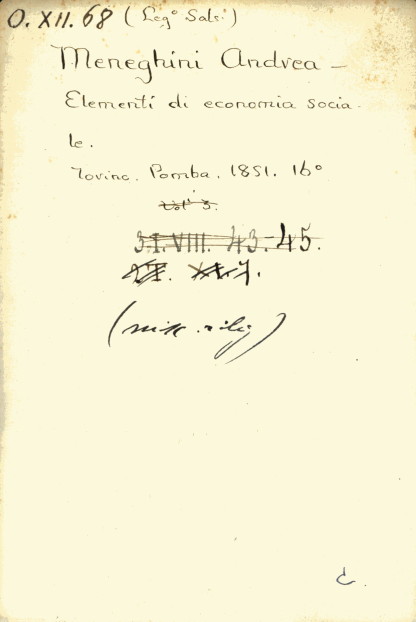 O. XII. 68 (Leg° Salsi)
Meneghini Andrea –
Elementi di economia socia-
le.
Torino. Pomba. 1851. 16°
Vol' 3.
3.I.VIII. 43-45.
(misc. rileg)